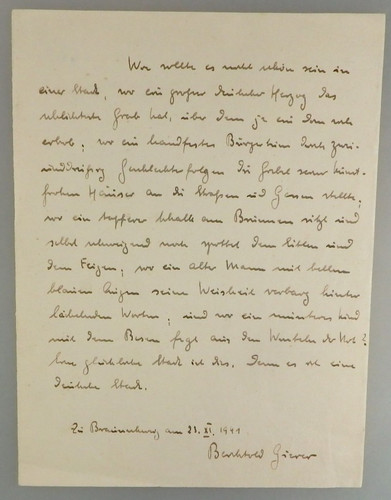 Wo sollte es wohl schön sein in
einer Stadt, wo ein großer deutscher Herzog das
schlichteste Grab hat, über dem je ein Dom sich
erhob; wo ein handfestes Bürgertum durch zwei-
unddreißig Geschlechterfolgen die Giebel seiner kunst-
frohen Häuser an die Straßen und Gassen stellte;
wo ein tapferer Schalk am Brunnen sitzt und
selbst schweigend noch spottet dem Satten und
dem Feigen; wo ein alter Mann mit hellen
blauen Augen seine Weisheit verbarg hinter
lächelnden Worten; und wo ein munteres Kind
mit dem Besen fegt aus den Winkeln die Not
eine glückliche Stadt ist dies. Denn es ist eine
deutsche Stadt.
Zu Braunschweig am 21. XI. 1941
Berchtold Gierer